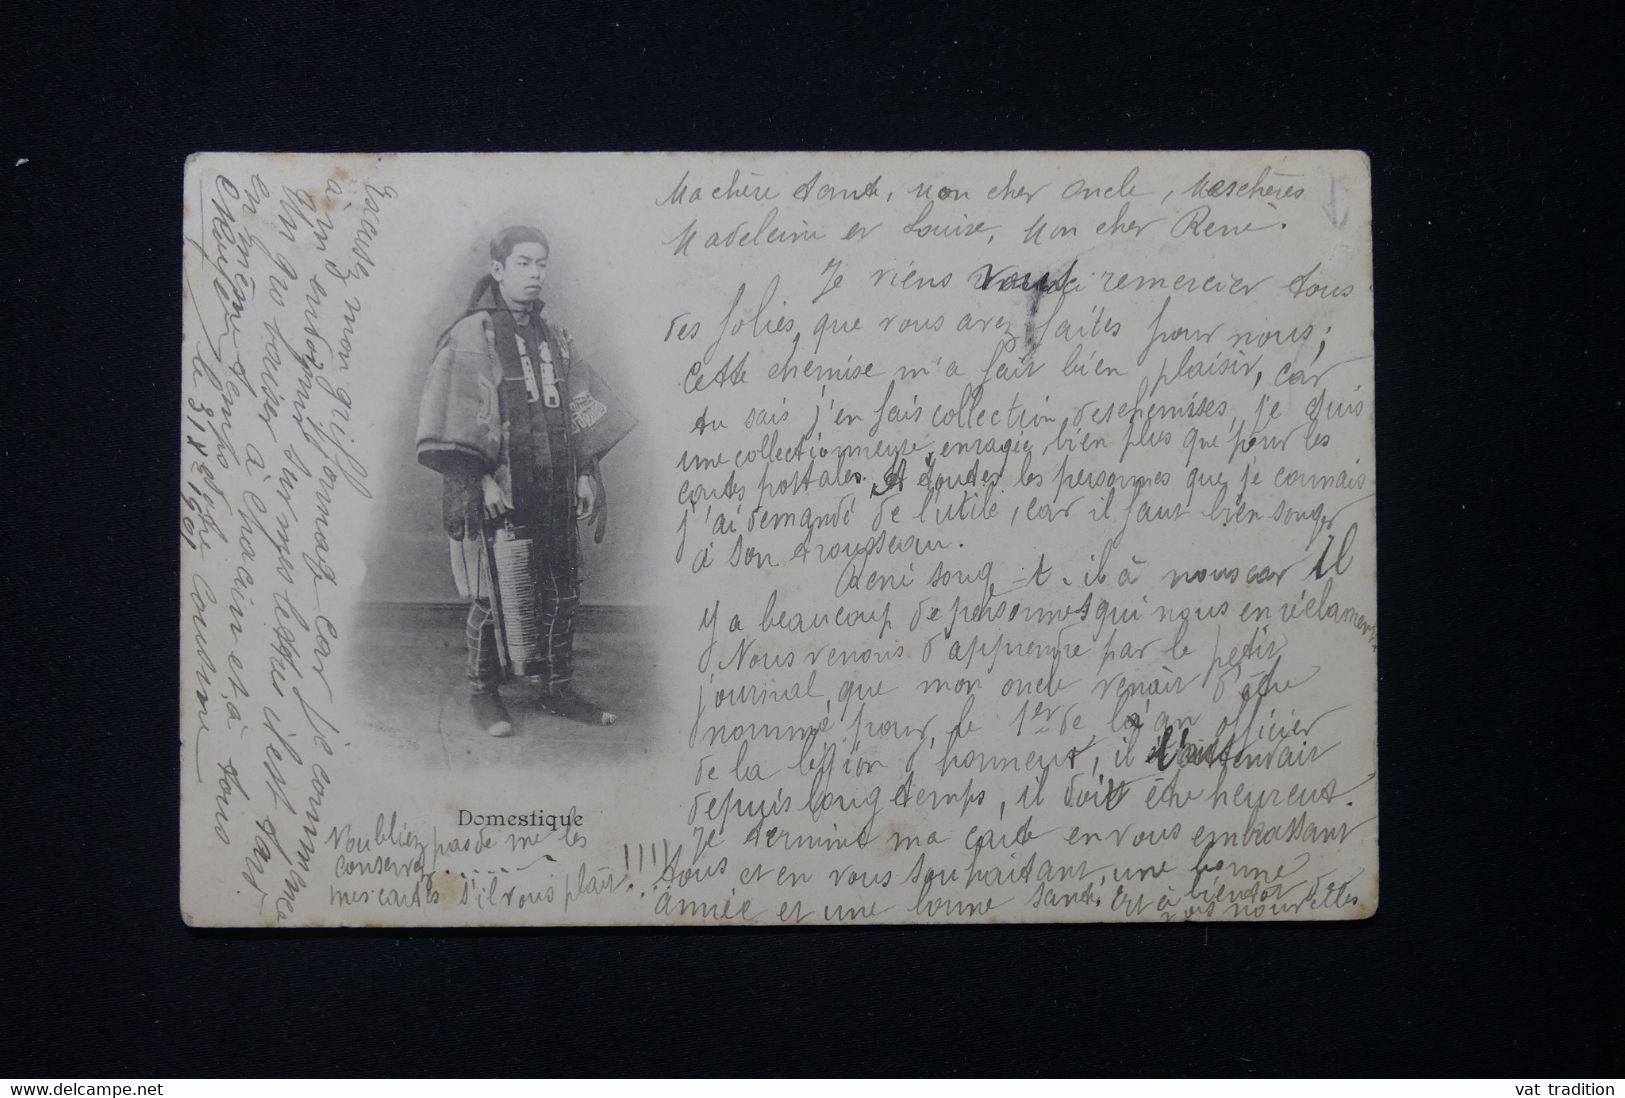 Ma chère tante, Mon cher Oncle, Mes chères
Madeleine et Louise, Mon cher René.
Je viens vous remercier tous
des folies que vous avez faites pour nous;
Cette chemise m'a fait bien plaisir, car
tu sais j'en fais collection, des chemises, je suis
une collectionneuse enragée, bien plus que pour les
cartes postales. A toutes les personnes que je connais
j'ai demandé de l'utile, car il faut bien songer
à son trousseau.
René song-t-il à nous car il
y a beaucoup de personnes qui nous en réclament
Nous venons d'apprendre par le petit
journal que mon oncle venait d'être
nommé pour le 1er de l'an officier
de la légion d'honneur, il l'attendait
depuis longtemps, il doit être heureux.
Je termine ma carte en vous embrassant
tous et en vous souhaitant une bonne
année et une bonne santé. Et à bientôt de
vos nouvelles
Domestique
N'oubliez pas de me les
conserver......
mes cartes s'il vous plaît!!!!!
Excusez mon griffonnage car je commence
à m'y
Un gros baiser sur mes lettres il est tard
en même temps à chacun et à tous
le 31 Xbre 1901
vat tradition
delcampe.net